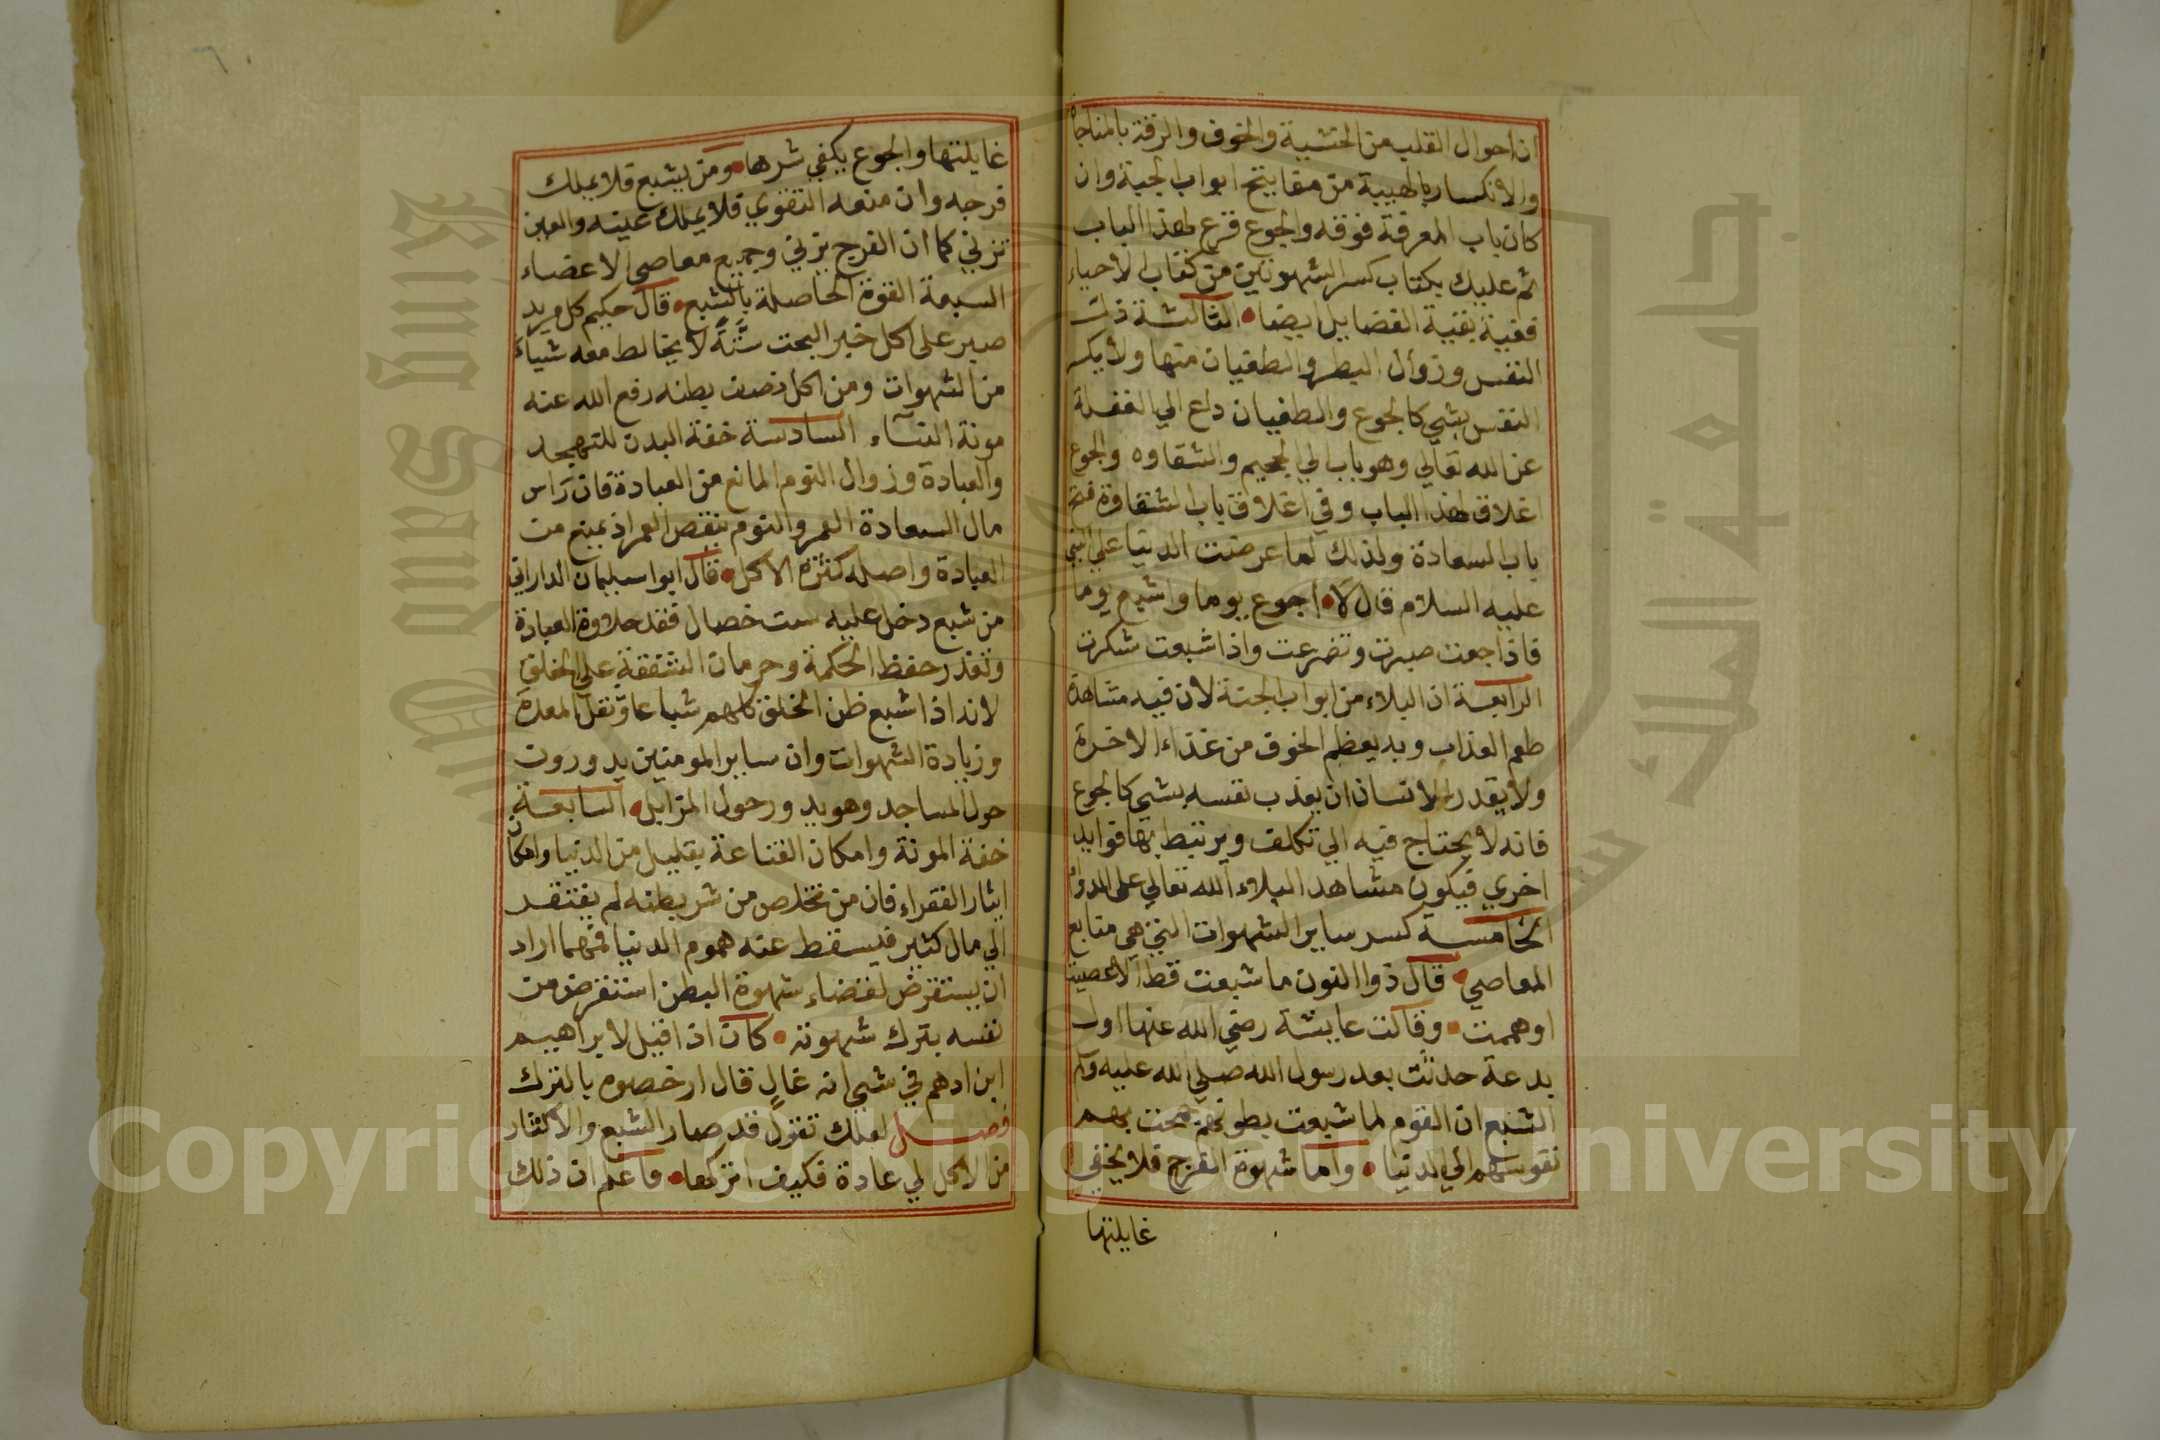 ان احوال القلب من الخشية والخوف والرقة بالمناجاة
والانكسار بالهيبة من مفاتيح ابواب الجنة وان
كان باب المعرفة فوقه والجوع قرع لهذا الباب
ثم عليك بكتاب كسر الشهوتين من كتاب الاحياء
ففيه بقية الفضايل ايضا الثالثة ذل
النفس وزوال البطر والطغيان منها ولا يكسر
النفس بشي كالجوع والطغيان داع الي الغفلة
عن الله تعالي وهو باب الي الجحيم والشقاوه والجوع
اغلاق لهذا الباب وفي اغلاق باب الشقاوة فتح
باب السعادة ولذلك لما عرضت الدنيا علي النبي
عليه السلام قال لا اجوع يوما واشبع يوما
فاذا جعت صبرت وتضرعت واذا شبعت شكرت
الرابعة ان البلاء من ابواب الجنة لان فيه مشاهدة
طعم العذاب وبه يعظم الخوف من عذاء الاخرة
ولا يقدر الانسان ان يعذب نفسه بشي كالجوع
فانه لا يحتاج فيه الي تكلف ويرتبط بها فوايد
اخري فيكون مشاهد البلاء الله تعالي علي الدوام
الخامسة كسر ساير الشهوات التي هي منابع
المعاصي قال ذوا النون ما شبعت قط الا عصيت
او هممت وقالت عايشة رضي الله عنها اول
بدعة حدثت بعد رسول الله صلي الله عليه وسلم
الشبع ان القوم لما شبعت بطونهم جمحت بهم
نفوسهم الي الدنيا واما شهوة الفرج فلا يخفي
غايلتها
غايلتها والجوع يكفي شرها ومن يشبع فلا يملك
فرجه وان منعه التقوي فلا يملك عينه والعين
تزني كما ان الفرج يزني وجميع معاصي الاعضاء
السبعة القوة الحاصلة بالشبع قال حكيم كل مريد
صبر علي اكل خبز البحت سَنَةً لا يخالط معه شياء
من الشهوات ومن اكل نصف بطنه رفع الله عنه
مونة النساء السادسة خفة البدن للتهجد
والعبادة وزوال النوم المانع من العبادة فان رَاس
مال السعادة العمر والنوم ينقص العمر اذ يمنع من
العبادة واصله كثرة الاكل قال ابوا سليمان الداراني
من شبع دخل عليه ست خصال فقد حلاوة العبادة
وتعذر حفظ الحكمة وحرمان الشفقة علي الخلق
لانه اذا شبع ظن الخلق كلهم شباعا وثقل المعدة
وزيادة الشهوات وان ساير المومنين يدورون
حول المساجد وهو يدور حول المزابل السابعة
خفة المونة وامكان القناعة بقليل من الدنيا وامكان
ايثار الفقراء فان من تخلص من شر بطنه لم يفتقد
الي مال كثير فيسقط عنه هموم الدنيا فمهما اراد
ان يستقرض لقضاء شهوة البطن استقرض من
نفسه بترك شهوته كان اذا قيل لابراهيم
ابن ادهم في شي انه غالٍ قال ارخصوه بالترك
فصل لعلك تقول قد صار الشبع والاكثار
من الاكل لي عادة فكيف اتركها فاعلم ان ذلك
Copyright © King Saud University
King Saud University
جامعة الملك سعود